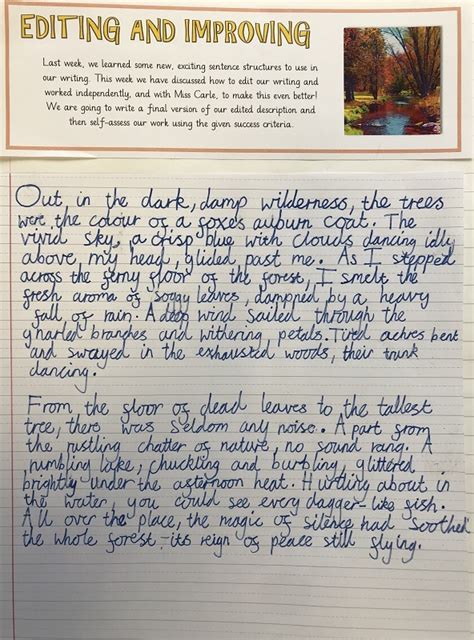 EDITING AND IMPROVING
Last week, we learned some new, exciting sentence structures to use in
our writing. This week we have discussed how to edit our writing and
worked independently, and with Miss Carle, to make this even better!
We are going to write a final version of our edited description and
then self-assess our work using the given success criteria.
Out, in the dark, damp wilderness, the trees
were the colour of a foxes auburn coat. The
vivid sky, a crisp blue with clouds dancing idly
above my head, glided past me. As I stepped
across the ferny floor of the forest, I smelt the
fresh aroma of soggy leaves, dampned by a heavy
fall of rain. A deep wind sailed through the
gnarled branches and withering petals. Tired achres bent
and swayed in the exhausted woods, their trunk
dancing.
From the floor of dead leaves to the tallest
tree, there was seldom any noise. A part from
the rustling chatter of nature, no sound rang. A
rumbling lake, chuckling and burbling, glittered
brightly under the afternoon heat. Hurtling about in
the water, you could see, every dagger-like fish.
All over the place, the magic of silence had soothed
the whole forest - its reign of peace still flying.